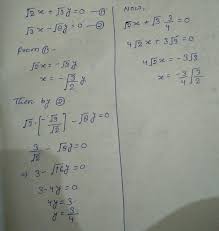 √2x + √3y = 0 -①
√3x - √8y = 0 -②
From ①-
√2x = -√3y
x = -√3/√2 y
Then by ②
√3·[-√3/√2] - √8y = 0
3/√2 - √8y = 0
⇒ 3 - √16y = 0
3 - 4y = 0
4y = 3
y = 3/4
Now,
√2x + √3·3/4 = 0
4√2x + 3√3 = 0
4√2x = -3√3
x = -3/4 √3/2